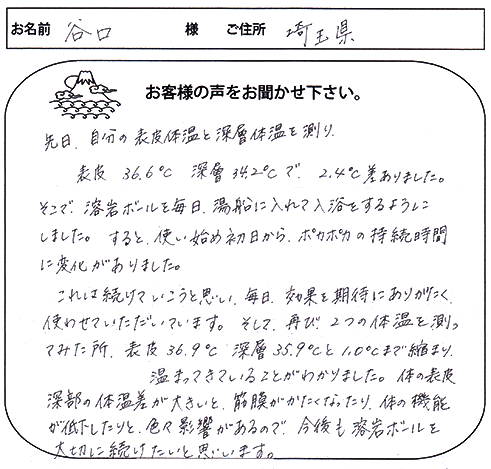 お名前 谷口 様 ご住所 埼玉県
お客様の声をお聞かせ下さい。
先日、自分の表皮体温と深層体温を測り、
表皮 36.6℃ 深層 34.2℃で、2.4℃差ありました。
そこで、溶岩ボールを毎日、湯船に入れて入浴をするように
しました。すると、使い始め初日から、ポカポカの持続時間
に変化がありました。
これは続けていこうと思い、毎日、効果を期待にありがたく、
使わせていただいています。そして、再び、2つの体温を測っ
てみた所、表皮 36.9℃ 深層 35.9℃と 1.0℃まで縮まり、
温まってきていることがわかりました。体の表皮
深部の体温差が大きいと、筋膜がかたくなったり、体の機能
が低下したりと、色々影響があるので、今後も溶岩ボールを
大切に続けたいと思います。